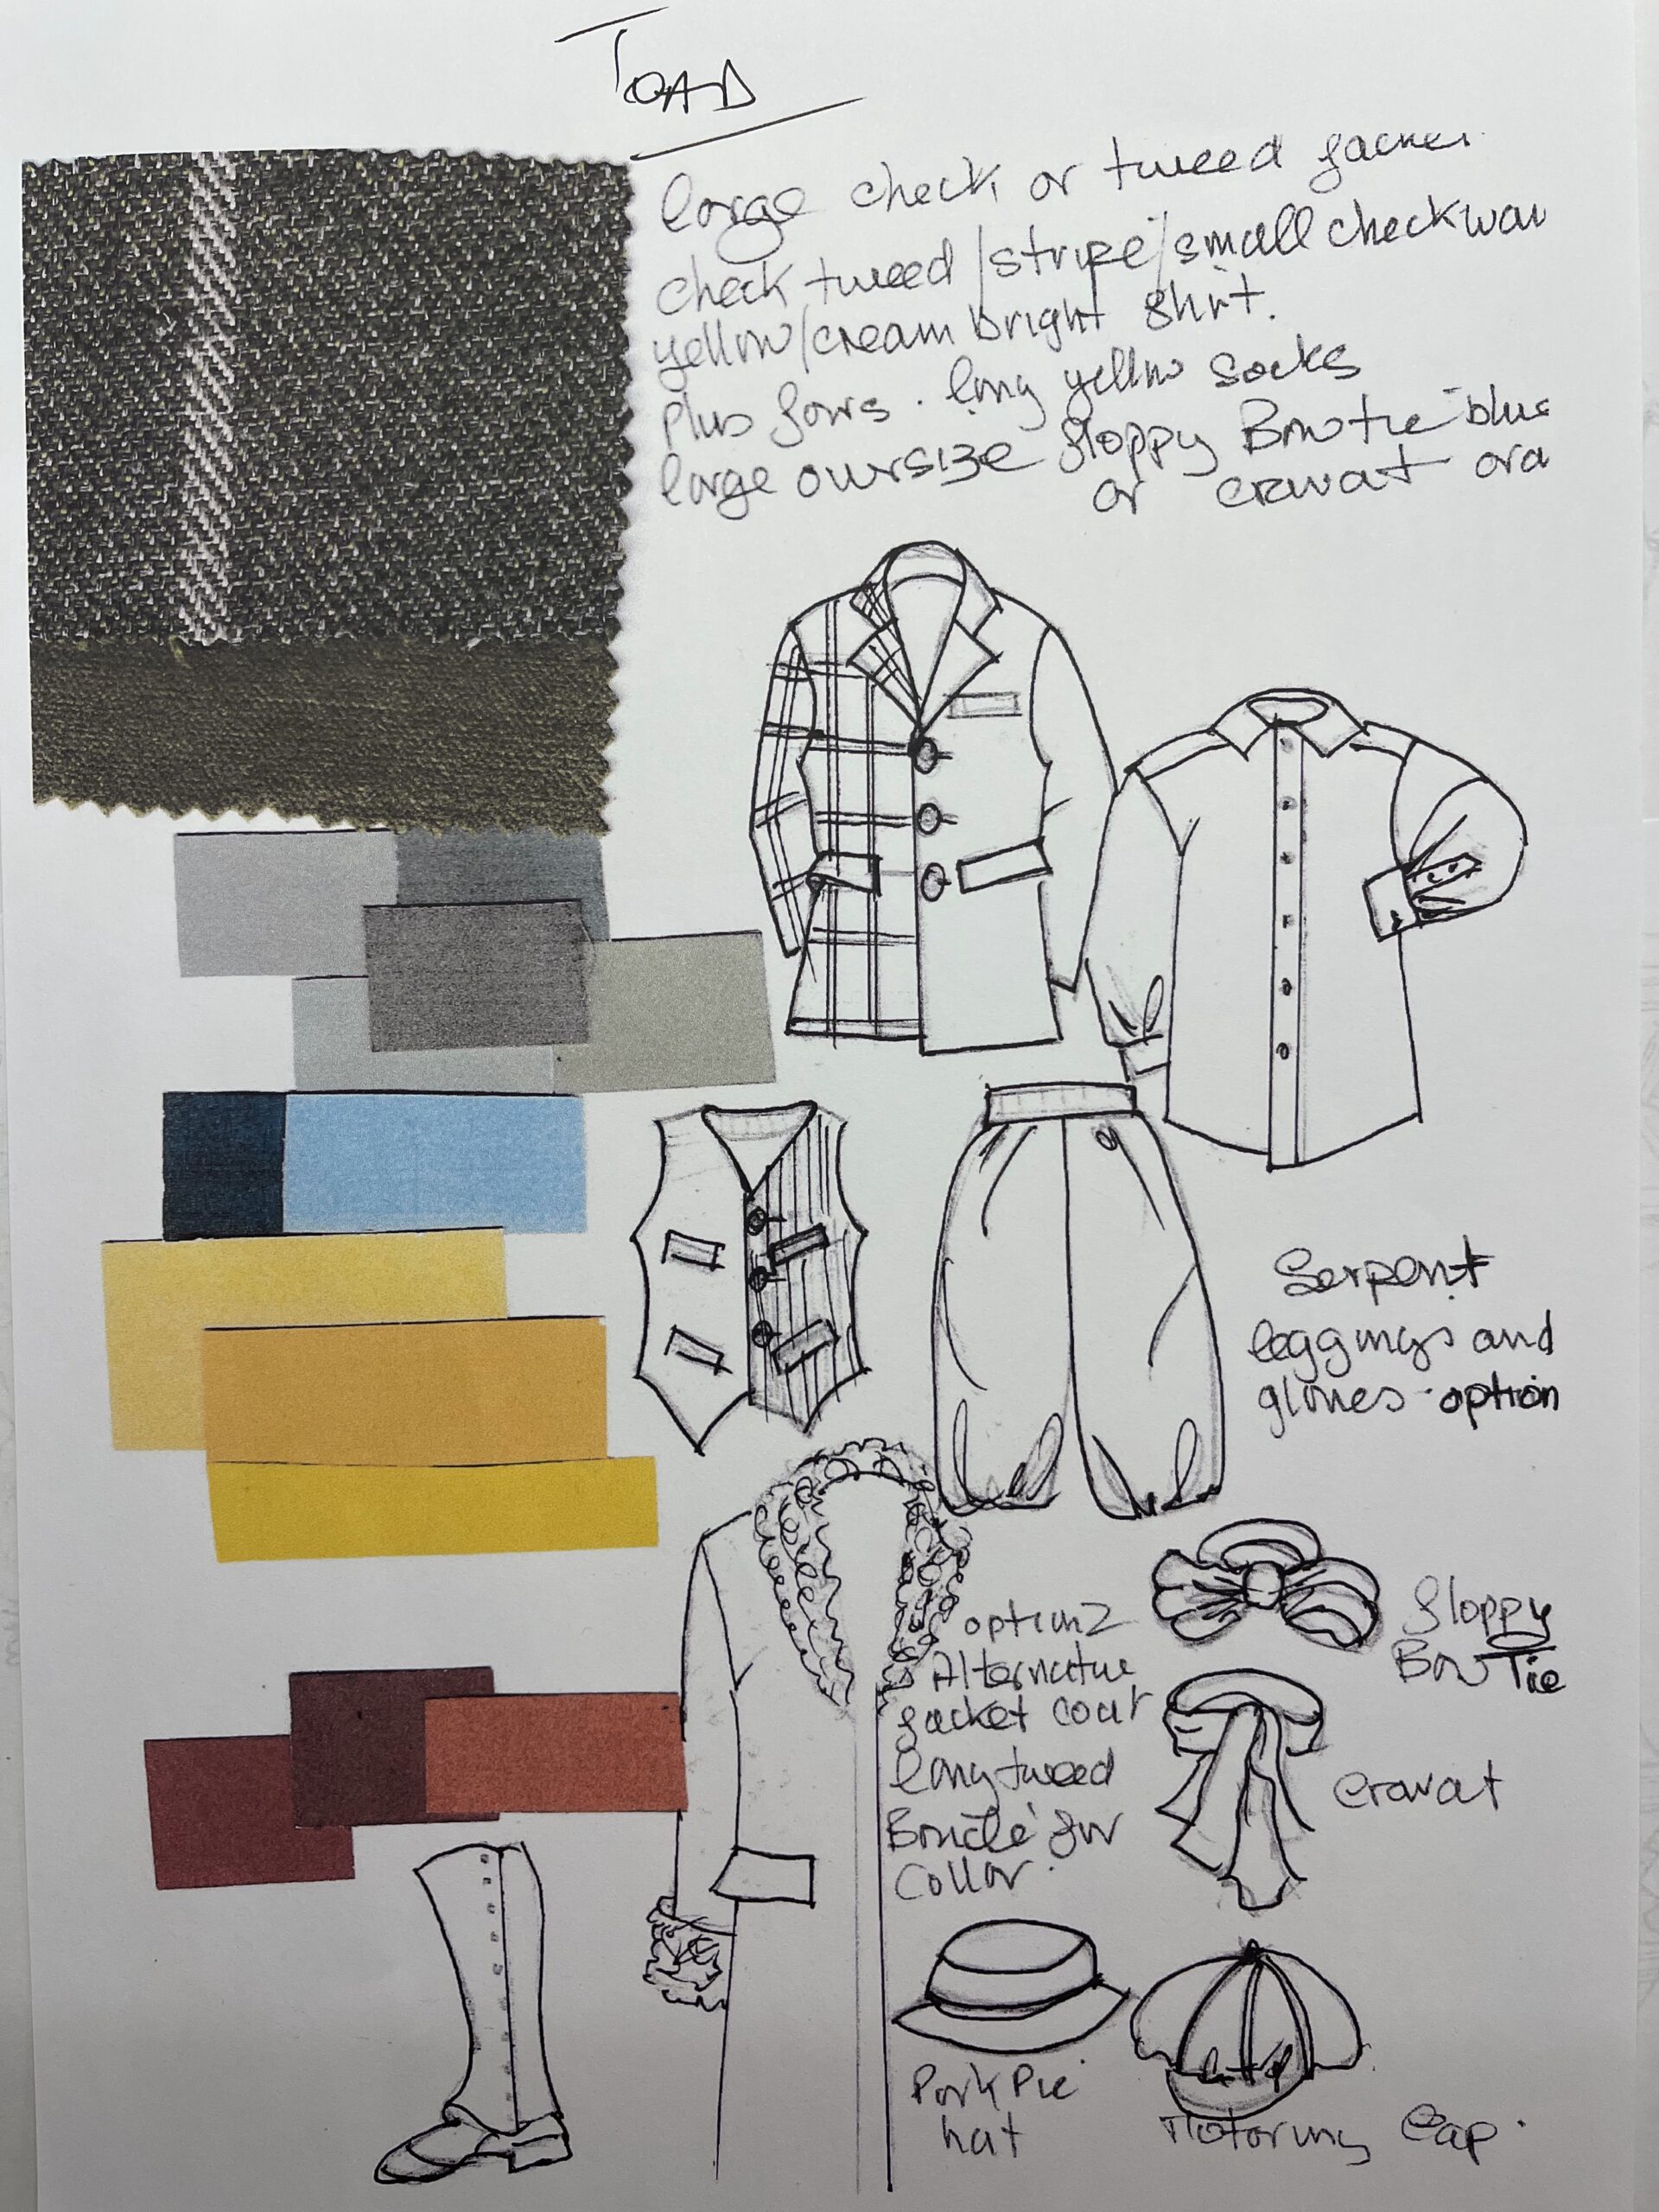 TOAD
large check or tweed jacket
check tweed/stripe/small check wai
yellow/cream bright shirt.
plus fours. long yellow socks
large oversize floppy Bow tie blue
or cravat ora
Serpent
leggings and
gloves option
floppy
Bow Tie
option 2
Alternative
jacket coat
long tweed
Boucle fur
Collar.
cravat
Pork Pie
hat
Motoring Cap.